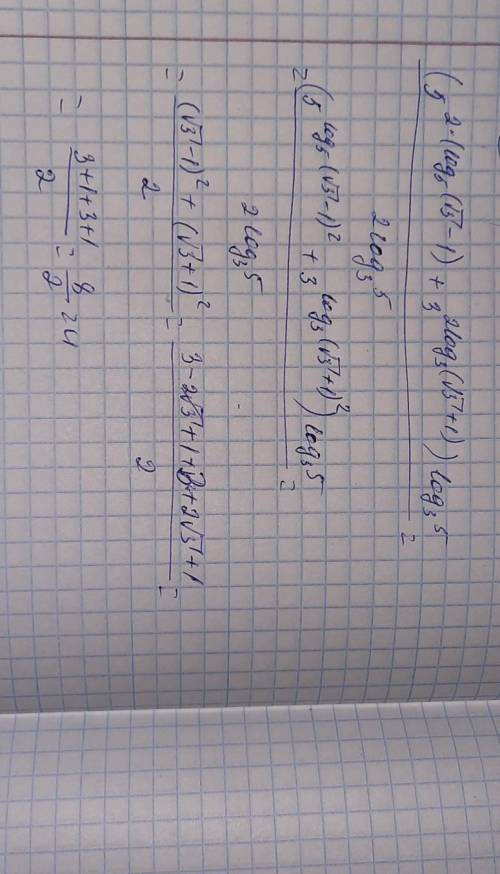 (5^{2·(log_5(√3-1)} + 3^{2log_3(√3+1)}) log_3 5
2log_3 5 =
= (5^{log_5(√3-1)^2} + 3^{log_3(√3+1)^2}) log_3 5
2log_3 5 =
= (√3-1)^2 + (√3+1)^2 / 2 = 3-2√3+1+3+2√3+1 / 2 =
= 3+1+3+1 / 2 = 8/2 = 4